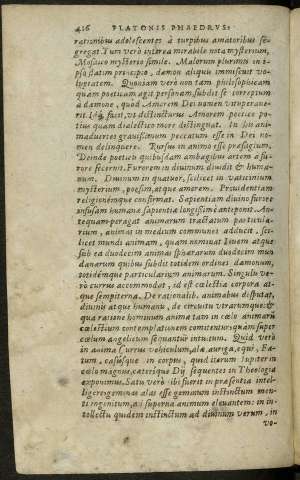 416 PLATONIS PHAEDRVS:
rationibus adolescentes à turpibus amatoribus se-
gregat. Tum verò interea mirabile nota mysterium,
Mosaico mysterio simile. Malorum plurimis in ip-
so statim principio, dæmon aliquis immiscuit vo-
luptatem. Quoniam verò non tam philosophicam
quam poeticam agit personam, subdit se correptum
à dæmone, quod Amorem Dei nomen vituperaue-
rit. Id facit, vt distincturus Amorem poetice po-
tius quam dialectico more distinguat. In his ani-
maduertes grauissimum peccatum esse in Dei no-
men delinquere. Rursus in animo esse præsagium.
Deinde poeticis quibusdam ambagibus artem à fu-
rore secernit. Furorem in diuinum diuidit & huma-
num. Diuinum in quatuor, scilicet in vaticinium,
mysterium, poesim, atque amorem. Prouidentiam
religionémque confirmat. Sapientiam diuino furore
infusam humanæ sapientiæ longissimè anteponit. An-
tequam peragat animarum tractatum particula-
rium, animas in medium communes adducit, sci-
licet mundi animam, quam nominat Iouem atque
sub ea duodecim animas sphærarum duodecim mun
danarum quibus subdit totidem ordines dæmonum,
totidémque particularium animarum. Singulis ve-
rò currus accommodat, id est cælestia corpora at-
que sempiterna. De rationali animabus disputat,
diuinis atque humanis, de circuitu vtrarumque: &
qua ratione hominum animæ tam in cælo animarū
cælestium contemplationem comitentur, quam super
cælum angelicum sequantur intuitum. Quid verò
in anima Currus vehiculum, alæ, auriga, equi, Fa-
tum, casusque in corpus, quid item Iupiter in
cælo magnus, cæterique Dij sequentes in Theologia
exponimus. Satis verò tibi fuerit in præsentia intel-
ligere geminas alas esse geminum instinctum men-
ti ingenitum, ad superna animum eleuantem: in in-
tellectu quidem instinctum ad diuinum verum, in
vo-